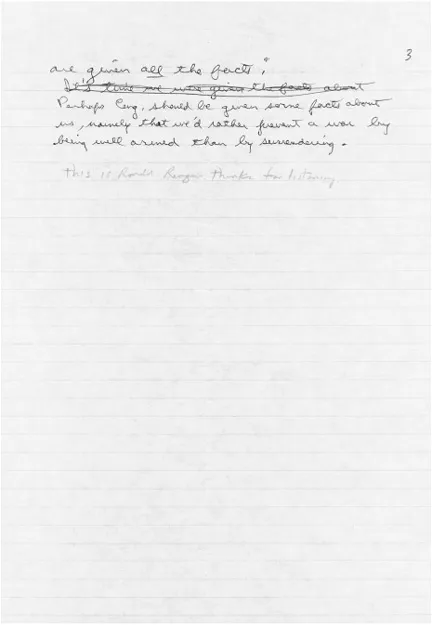 3
are given all the facts."
It's time we were given the facts about
Perhaps Cong. should be given some facts about
us, namely that we'd rather prevent a war by
being well armed than by surrendering.
This is Ronald Reagan thanks for listening.